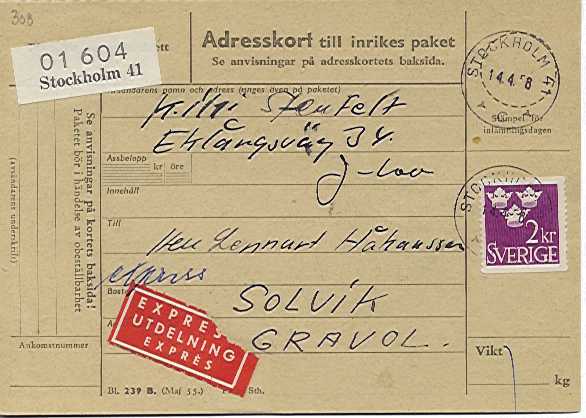 308
01 604
Stockholm 41
ett
Adresskort till inrikes paket
Se anvisningar på adresskortets baksida.
STOCKHOLM 41
14.4.58
Stämpel för
inlämningsdagen
Avsändarens namn och adress (anges även på paketet)
34.
J-lov
Assbelopp
kr öre
Innehåll
Till
Herr Lennart
express
SOLVIK
GRAVOL.
EXPRES
UTDELNING
EXPRÈS
STOCKHOLM
2 kr
SVERIGE
Vikt
kg
Se anvisningar på kortets baksida!
Paketet bör i händelse av obeställbarhet
(avsändarens underskrift)
Ankomstnummer
Bl. 239 B. (Maj 55.) Sth.